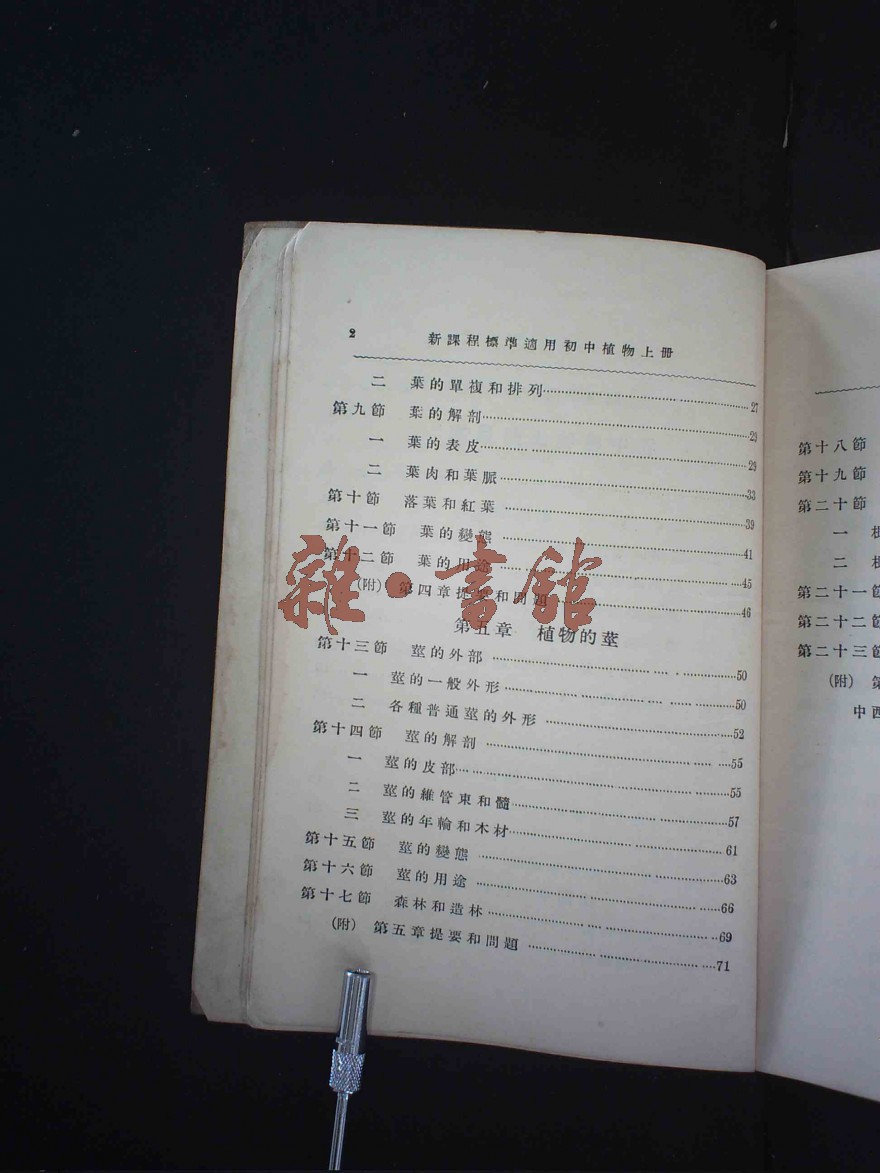 2 新課程標準適用初中植物上册
二 葉的單複和排列……27
第九節 葉的解剖……29
一 葉的表皮……29
二 葉肉和葉脈……33
第十節 落葉和紅葉……39
第十一節 葉的變態……41
第十二節 葉的用途……45
(附) 第四章提要和問題……46
第五章 植物的莖
第十三節 莖的外部……50
一 莖的一般外形……50
二 各種普通莖的外形……52
第十四節 莖的解剖……55
一 莖的皮部……55
二 莖的維管束和髓……57
三 莖的年輪和木材……61
第十五節 莖的變態……63
第十六節 莖的用途……66
第十七節 森林和造林……69
(附) 第五章提要和問題……71
雜·書館
第十八節
第十九節
第二十節
一
二
第二十一節
第二十二節
第二十三節
(附)
中西